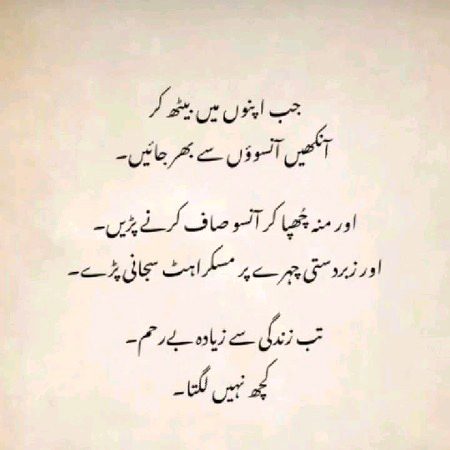 جب اپنوں میں بیٹھ کر
آنکھیں آنسوؤں سے بھر جائیں۔
اور منہ چُھپا کر آنسو صاف کرنے پڑیں۔
اور زبردستی چہرے پر مسکراہٹ سجانی پڑے۔
تب زندگی سے زیادہ بے رحم۔
کچھ نہیں لگتا۔